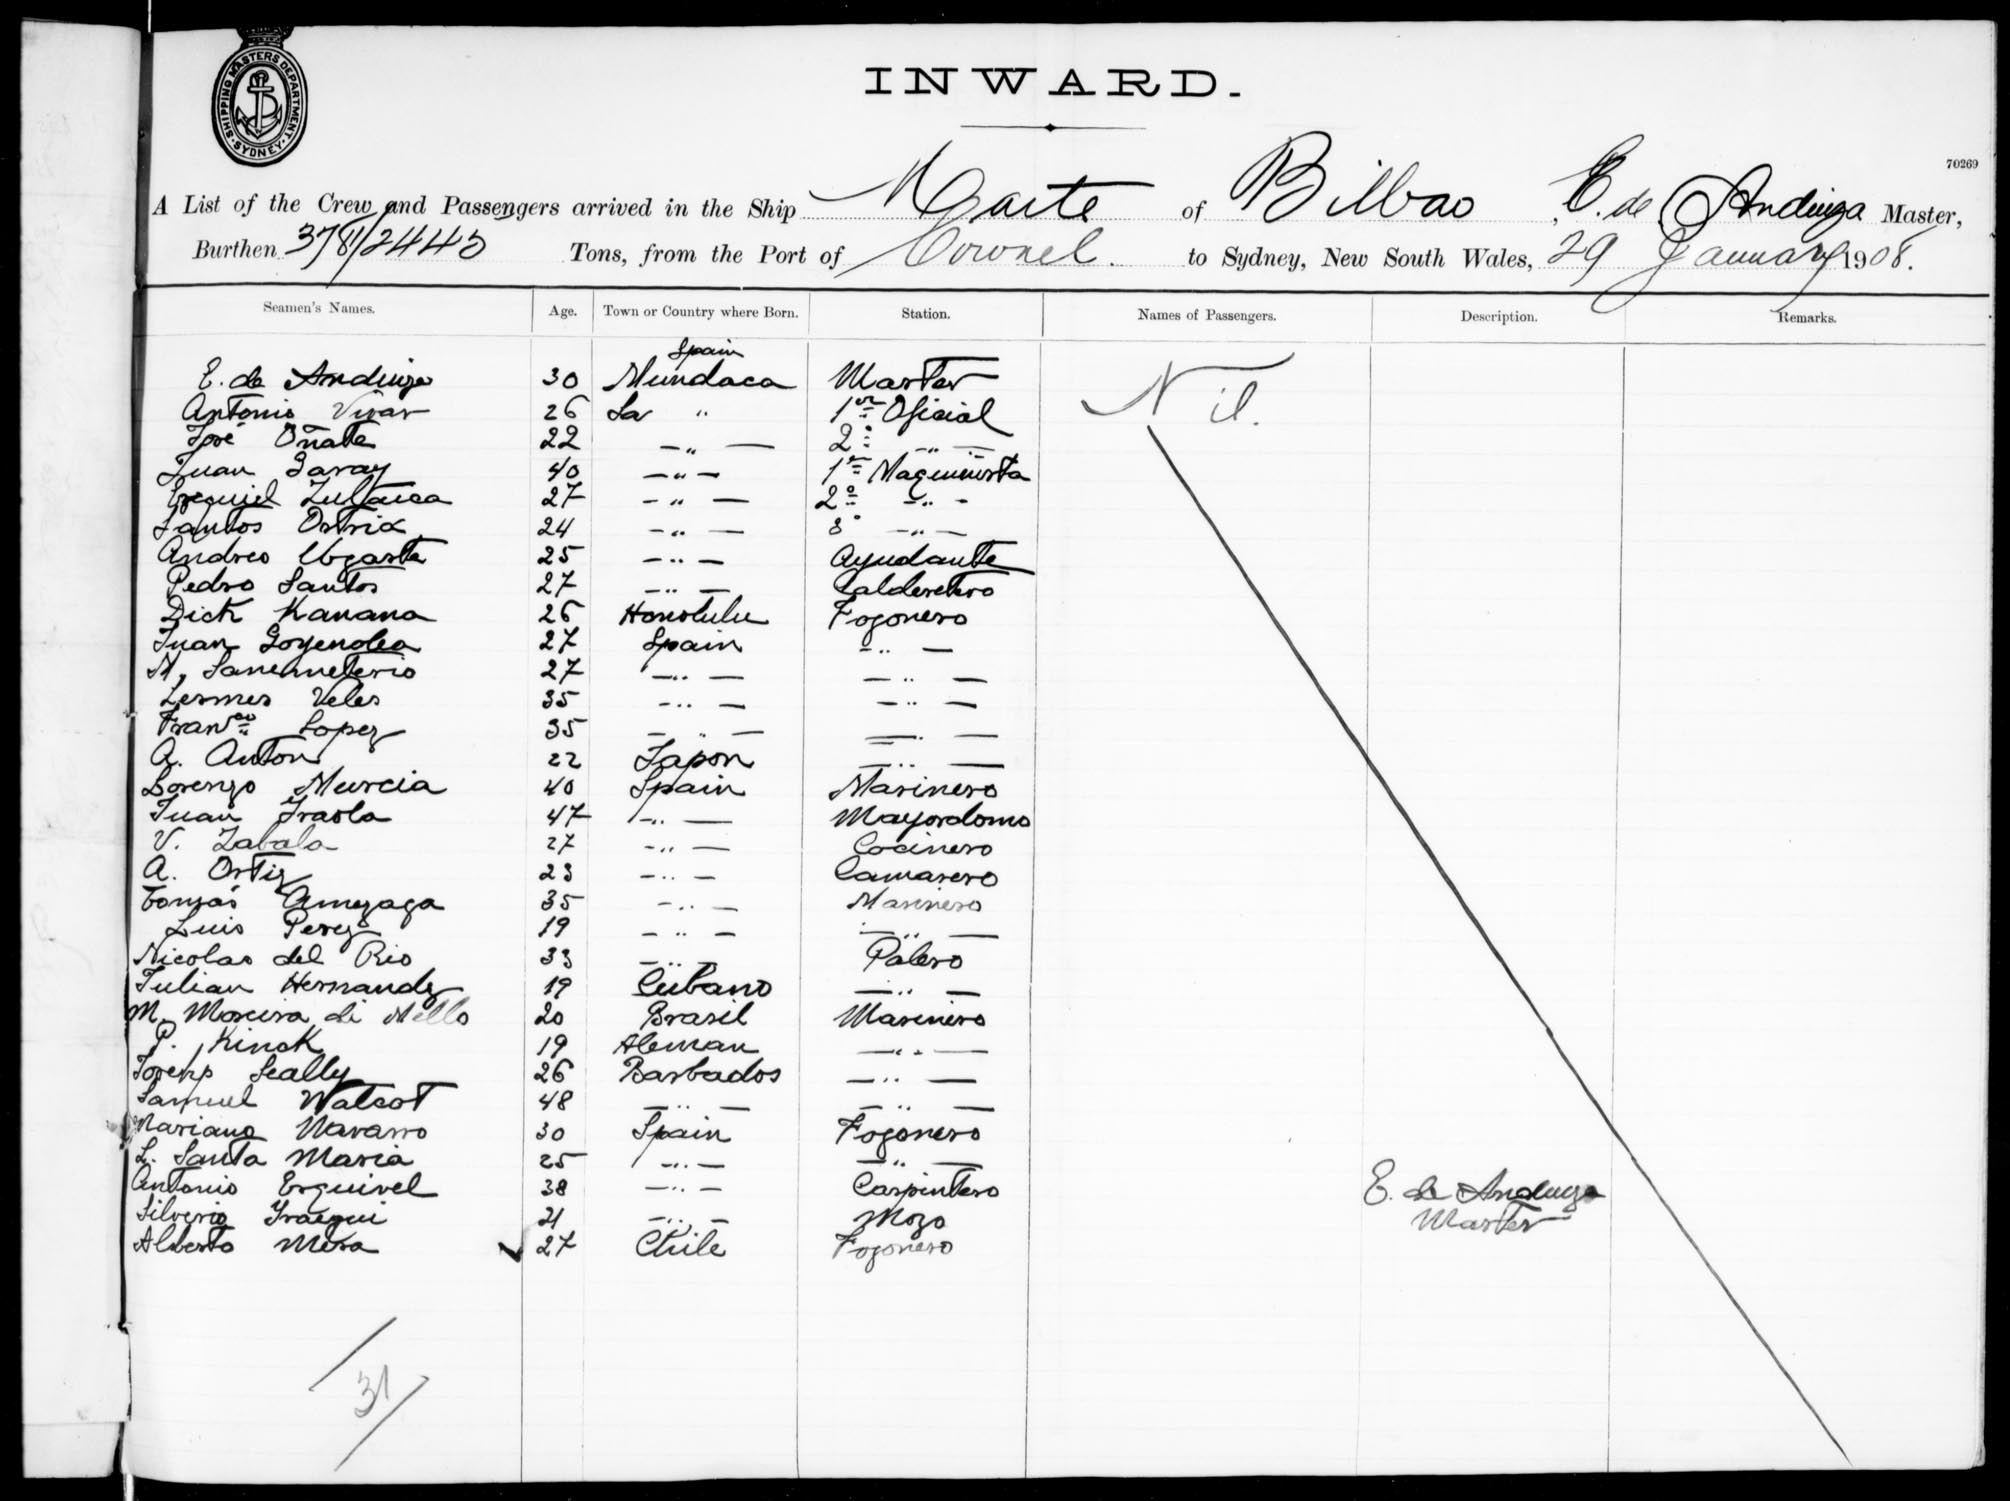 SHIPPING MASTERS DEPARTMENT. SYDNEY.
INWARD.
70269
A List of the Crew and Passengers arrived in the Ship Marte of Bilbao, E. de Anduiza Master,
Burthen Tons, from the Port of Coronel. to Sydney, New South Wales, 29 January 1908.
Seamen's Names. Age. Town or Country where Born. Station. Names of Passengers. Description. Remarks.
Spain
E. de Anduiza 30 Mundaca Master Nil.
Antonio Vivar 26 La " 1er Oficial
José Oñate 22 — " — 2º — " —
Juan Garay 40 — " — 1er Maquinista
Ezequiel 27 — " — 2º — " —
Santos 24 — " — 3º — " —
Andres Ugarte 25 — " — Ayudante
Pedro Santos 27 — " — Calderetero
Dick Kanana 26 Honolulu Fogonero
Juan Goyenolea 27 Spain — " —
M. Sanemeterio 27 — " — — " —
Lesmes Veles 35 — " — — " —
Franco Lopez 35 — " — — " —
A. Anton 22 Japon — " —
Lorenzo Murcia 40 Spain Marinero
Juan Iraola 47 — " — Mayordomo
V. Zabala 27 — " — Cocinero
A. Ortiz 23 — " — Camarero
Tomás Amezaga 35 — " — Marinero
Luis Perez 19 — " — — " —
Nicolas del Rio 33 — " — Palero
Julian Hernandez 19 Cubano — " —
M. Moreira di Mello 20 Brasil Marinero
P. Kinck 19 Aleman — " —
Joseph Sealy 26 Barbados — " —
Samuel Watcot 48 — " — — " —
Mariano Navarro 30 Spain Fogonero
L. Santa Maria 25 — " — — " —
Antonio Esquivel 38 — " — Carpintero
Silverio 21 — " — Mozo
Alberto Mesa 27 Chile Fogonero
E. de Anduiza
Master
31